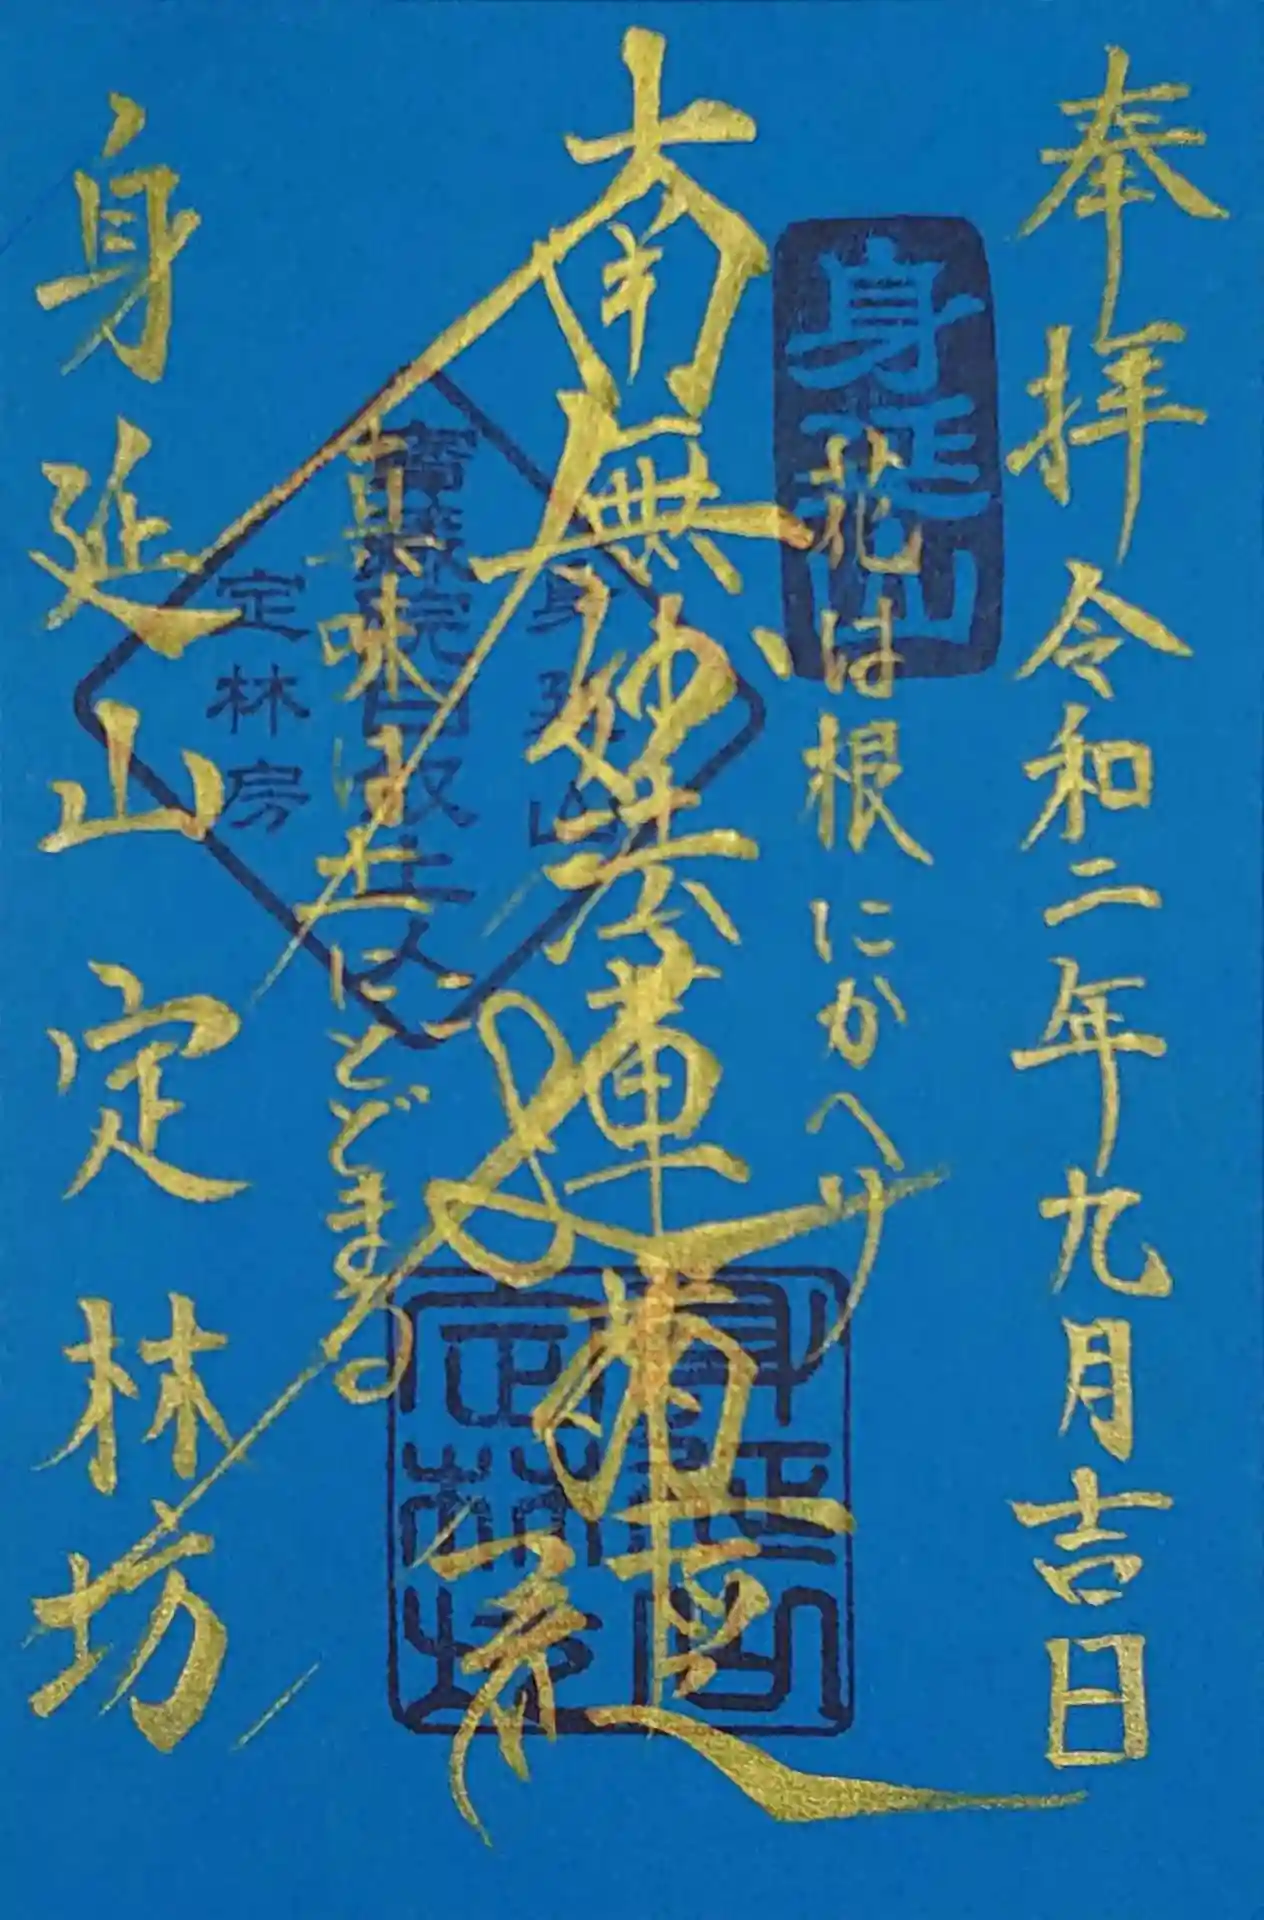 奉拝 令和二年九月吉日
身延山
花は根にかへり
南無妙法蓮華経
真味は土にとどまる
身延山
定林房
身延山定林坊
身延山
定林坊